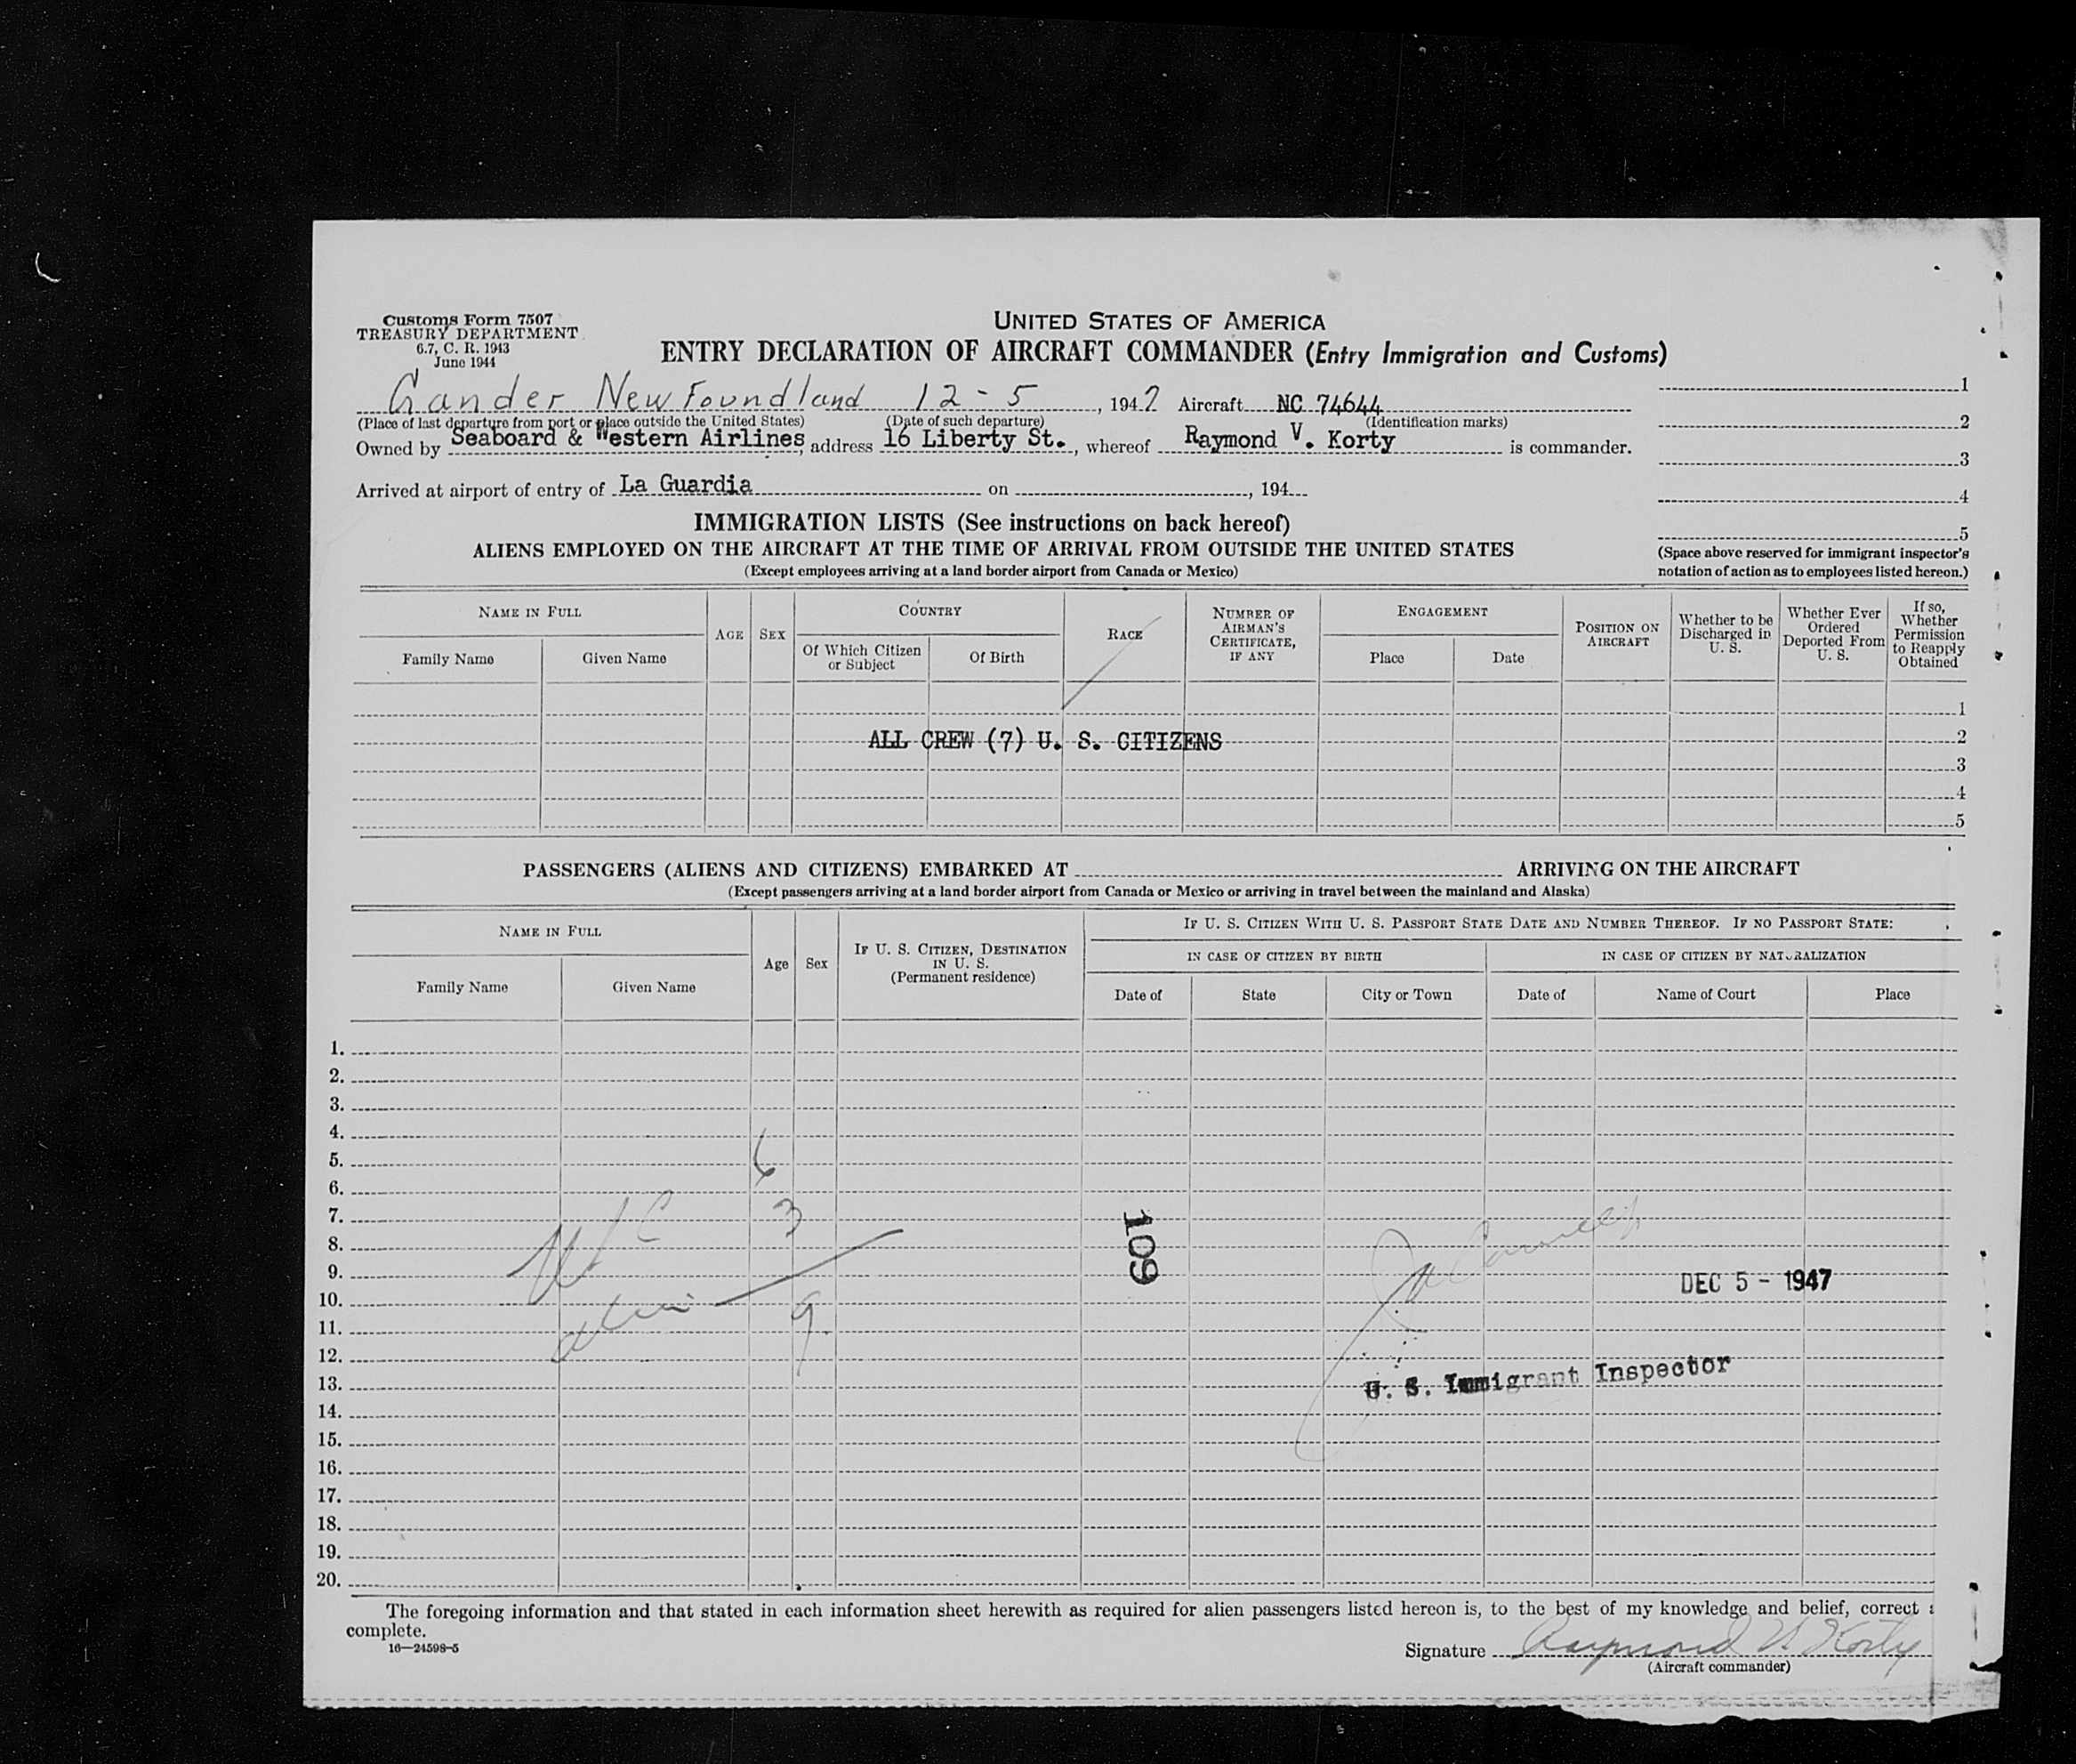 Customs Form 7507
TREASURY DEPARTMENT
6.7, C. R. 1943
June 1944
UNITED STATES OF AMERICA
ENTRY DECLARATION OF AIRCRAFT COMMANDER (Entry Immigration and Customs)
Gander Newfoundland 12-5, 1947 Aircraft NC 74644
(Place of last departure from port or place outside the United States) (Date of such departure) (Identification marks)
Owned by Seaboard & Western Airlines, address 16 Liberty St., whereof Raymond V. Korty is commander.
Arrived at airport of entry of La Guardia on , 194
1
2
3
4
5
(Space above reserved for immigrant inspector's
notation of action as to employees listed hereon.)
IMMIGRATION LISTS (See instructions on back hereof)
ALIENS EMPLOYED ON THE AIRCRAFT AT THE TIME OF ARRIVAL FROM OUTSIDE THE UNITED STATES
(Except employees arriving at a land border airport from Canada or Mexico)
NAME IN FULL
Family Name
Given Name
AGE
SEX
COUNTRY
Of Which Citizen
or Subject
Of Birth
RACE
NUMBER OF
AIRMAN'S
CERTIFICATE,
IF ANY
ENGAGEMENT
Place
Date
POSITION ON
AIRCRAFT
Whether to be
Discharged in
U. S.
Whether Ever
Ordered
Deported From
U. S.
If so,
Whether
Permission
to Reapply
Obtained
1
ALL CREW (7) U. S. CITIZENS 2
3
4
5
PASSENGERS (ALIENS AND CITIZENS) EMBARKED AT ARRIVING ON THE AIRCRAFT
(Except passengers arriving at a land border airport from Canada or Mexico or arriving in travel between the mainland and Alaska)
NAME IN FULL
Family Name
Given Name
Age
Sex
IF U. S. CITIZEN, DESTINATION
IN U. S.
(Permanent residence)
IF U. S. CITIZEN WITH U. S. PASSPORT STATE DATE AND NUMBER THEREOF. IF NO PASSPORT STATE:
IN CASE OF CITIZEN BY BIRTH
IN CASE OF CITIZEN BY NATURALIZATION
Date of
State
City or Town
Date of
Name of Court
Place
1.
2.
3.
4.
5. 6
6.
7. 3
8. 109
9. DEC 5 - 1947
10.
11. 9
12.
13. U. S. Immigrant Inspector
14.
15.
16.
17.
18.
19.
20.
The foregoing information and that stated in each information sheet herewith as required for alien passengers listed hereon is, to the best of my knowledge and belief, correct
complete.
16—24598-5
Signature Raymond V Korty
(Aircraft commander)